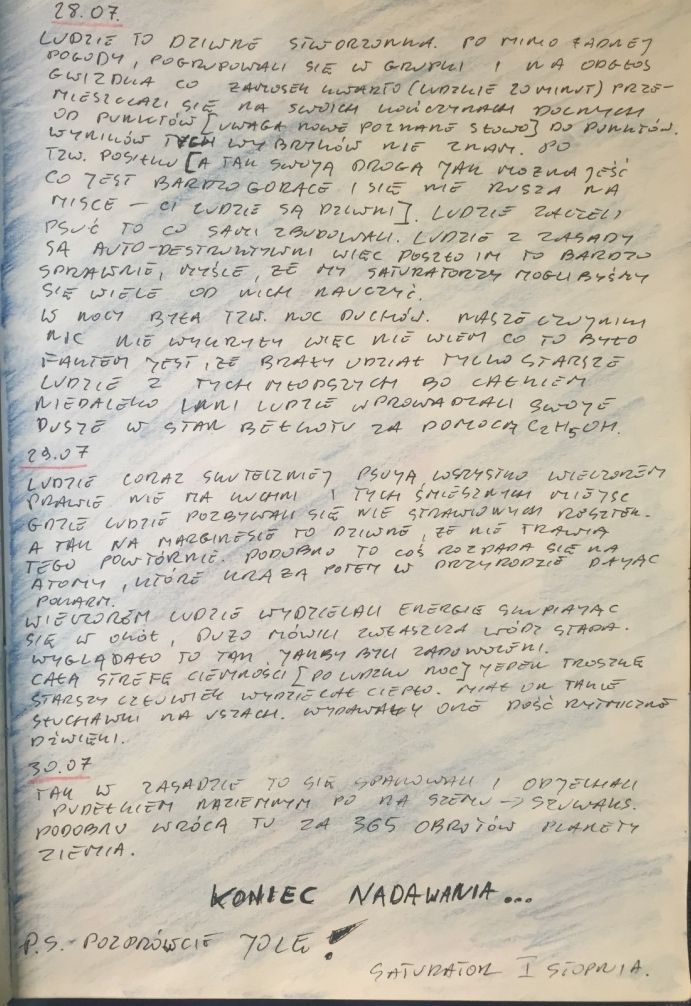 28.07.
LUDZIE TO DZIWNE STWORZONKA. PO MIMO ŻADNEJ
POGODY, POGRUPOWALI SIĘ W GRUPKI I NA ODGŁOS
GWIZDKA CO ZAWOSEK KWARTO (LUDZKIE 20 MINUT) PRZE-
MIESZCZALI SIĘ NA SWOICH KOŃCZYNACH DOLNYCH
OD PUNKTÓW [UWAGA NOWE POZNANE SŁOWO] DO PUNKTÓW.
WYNIKÓW TYCH WYBRYKÓW NIE ZNAM. PO
TZW. POSIŁKU [A TAK SWOJĄ DROGĄ JAK MOŻNA JEŚĆ
CO JEST BARDZO GORĄCE I SIĘ NIE RUSZA NA
MISCE – CI LUDZIE SĄ DZIWNI]. LUDZIE ZACZELI
PSUĆ TO CO SAMI ZBUDOWALI. LUDZIE Z ZASADY
SĄ AUTO-DESTRUKTYWNI WIĘC POSZŁO IM TO BARDZO
SPRAWNIE, MYŚLE, ŻE MY SATURATORZY MOGLIBYŚMY
SIĘ WIELE OD NICH NAUCZYĆ.
W NOCY BYŁA TZW. NOC DUCHÓW. NASZE CZUJNIKI
NIC NIE WYKRYŁY WIĘC NIE WIEM CO TO BYŁO
FAKTEM JEST, ŻE BRAŁY UDZIAŁ TYLKO STARSZE
LUDZIE Z TYCH MŁODSZYCH BO CAŁKIEM
NIEDALEKO INNI LUDZIE WPROWADZALI SWOJE
DUSZE W STAN BEŁKOTU ZA POMOCĄ C2H5OH.
29.07
LUDZIE CORAZ SKUTECZNIEJ PSUJĄ WSZYSTKO WIECZOREM
PRAWIE NIE MA KUCHNI I TYCH ŚMIESZNYCH MIEJSC
GDZIE LUDZIE POZBYWALI SIĘ NIE STRAWIONYCH RESZTEK.
A TAK NA MARGINESIE TO DZIWNE, ŻE NIE TRAWIĄ
TEGO POWTÓRNIE. PODOBNO TO COŚ ROZPADA SIĘ NA
ATOMY, KTÓRE KRĄŻĄ POTEM W PRZYRODZIE DAJĄC
POKARM.
WIECZOREM LUDZIE WYDZIELALI ENERGIĘ SKUPIAJĄC
SIĘ W OKÓŁ, DUŻO MÓWILI ZWŁASZCZA WÓDZ STADA.
WYGLĄDAŁO TO TAK, JAKBY BYLI ZADOWOLENI.
CAŁĄ STREFĘ CIEMNOŚCI [PO LUDZKU NOC] JEDEN TROSZKĘ
STARSZY CZŁOWIEK WYDZIELAŁ CIEPŁO. MIAŁ ON TAKIE
SŁUCHAWKI NA USZACH. WYDAWAŁY ONE DOŚĆ RYTMICZNE
DŹWIĘKI.
30.07
TAK W ZASADZIE TO SIĘ SPAKOWALI I ODJECHALI
PUDEŁKIEM NAZIEMNYM PO NA SZEMU → SZUWAKS.
PODOBNO WRÓCĄ TU ZA 365 OBROTÓW PLANETY
ZIEMIA.
KONIEC NADAWANIA...
P.S. POZDRÓWCIE JOLĘ!
SATURATOR I STOPNIA.